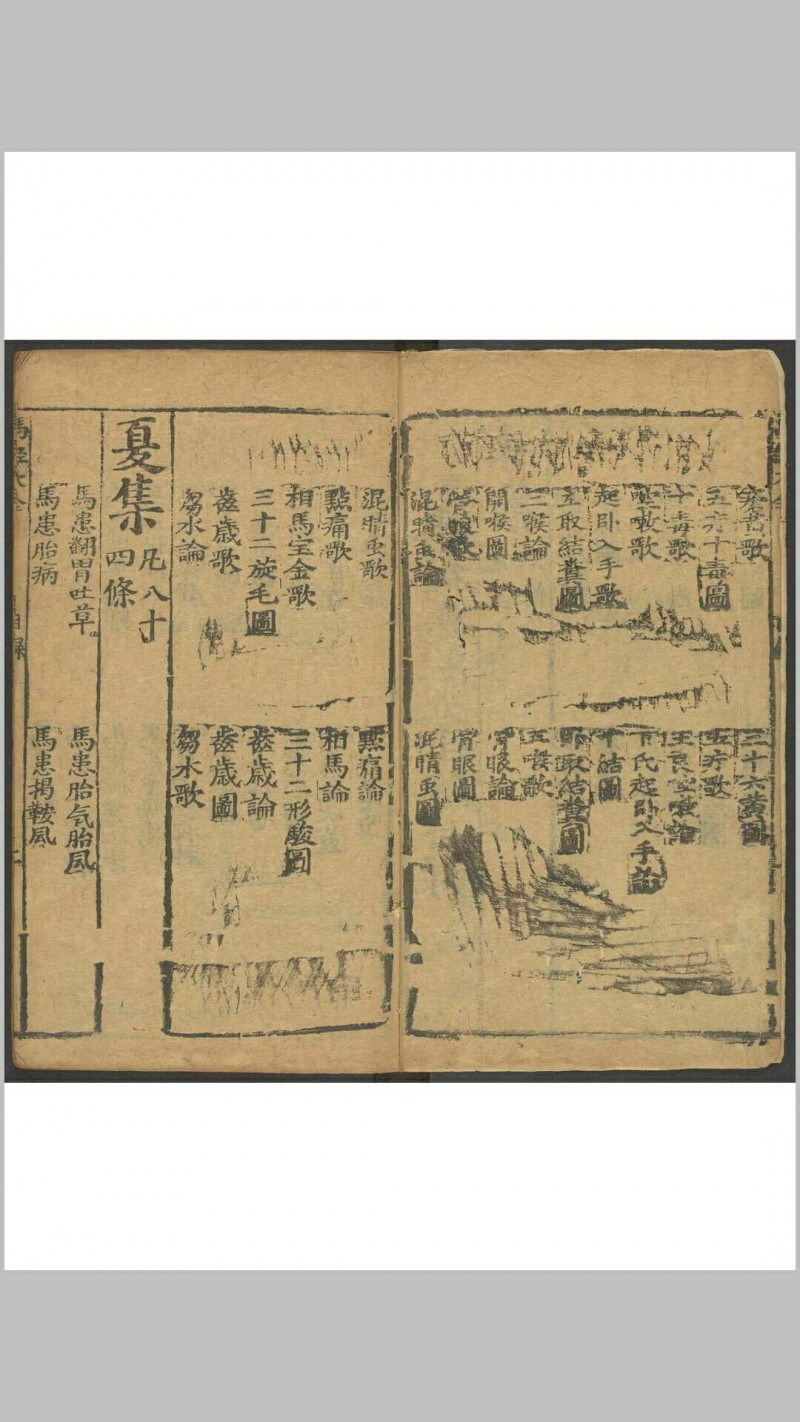 三十六黃圖
五六十毒圖
五疔歌
十毒歌
咳嗽歌
起卧入手歌
起卧入手論
取結糞圖
十結圖
取結糞圖
二喉論
五喉歌
開喉圖
骨眼論
骨眼圖
混睛虫論
混睛虫圖
混睛虫歌
點痛論
點痛歌
相馬論
相馬宝金歌
三十二形駿圖
三十二旋毛圖
齒歲論
齒歲歌
齒歲圖
芻水論
芻水歌
夏集
凡八十
四條
馬患翻胃吐草
馬患胎气胎風
馬患胎病
馬患揭鞍風